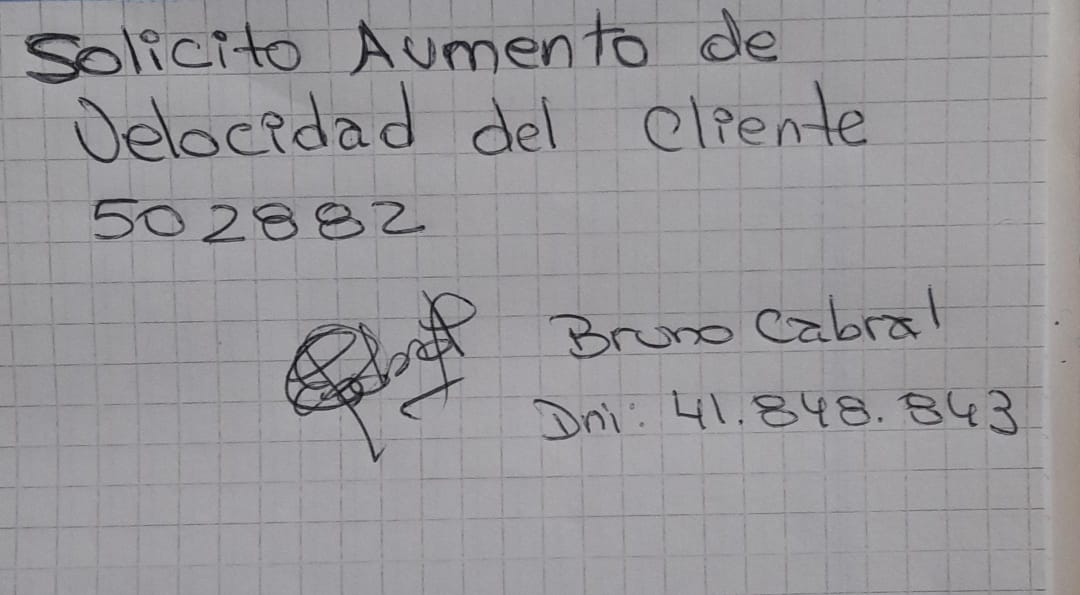 Solicito Aumento de
Velocidad del Cliente
502882
Bruno Cabral
Dni: 41.848.843